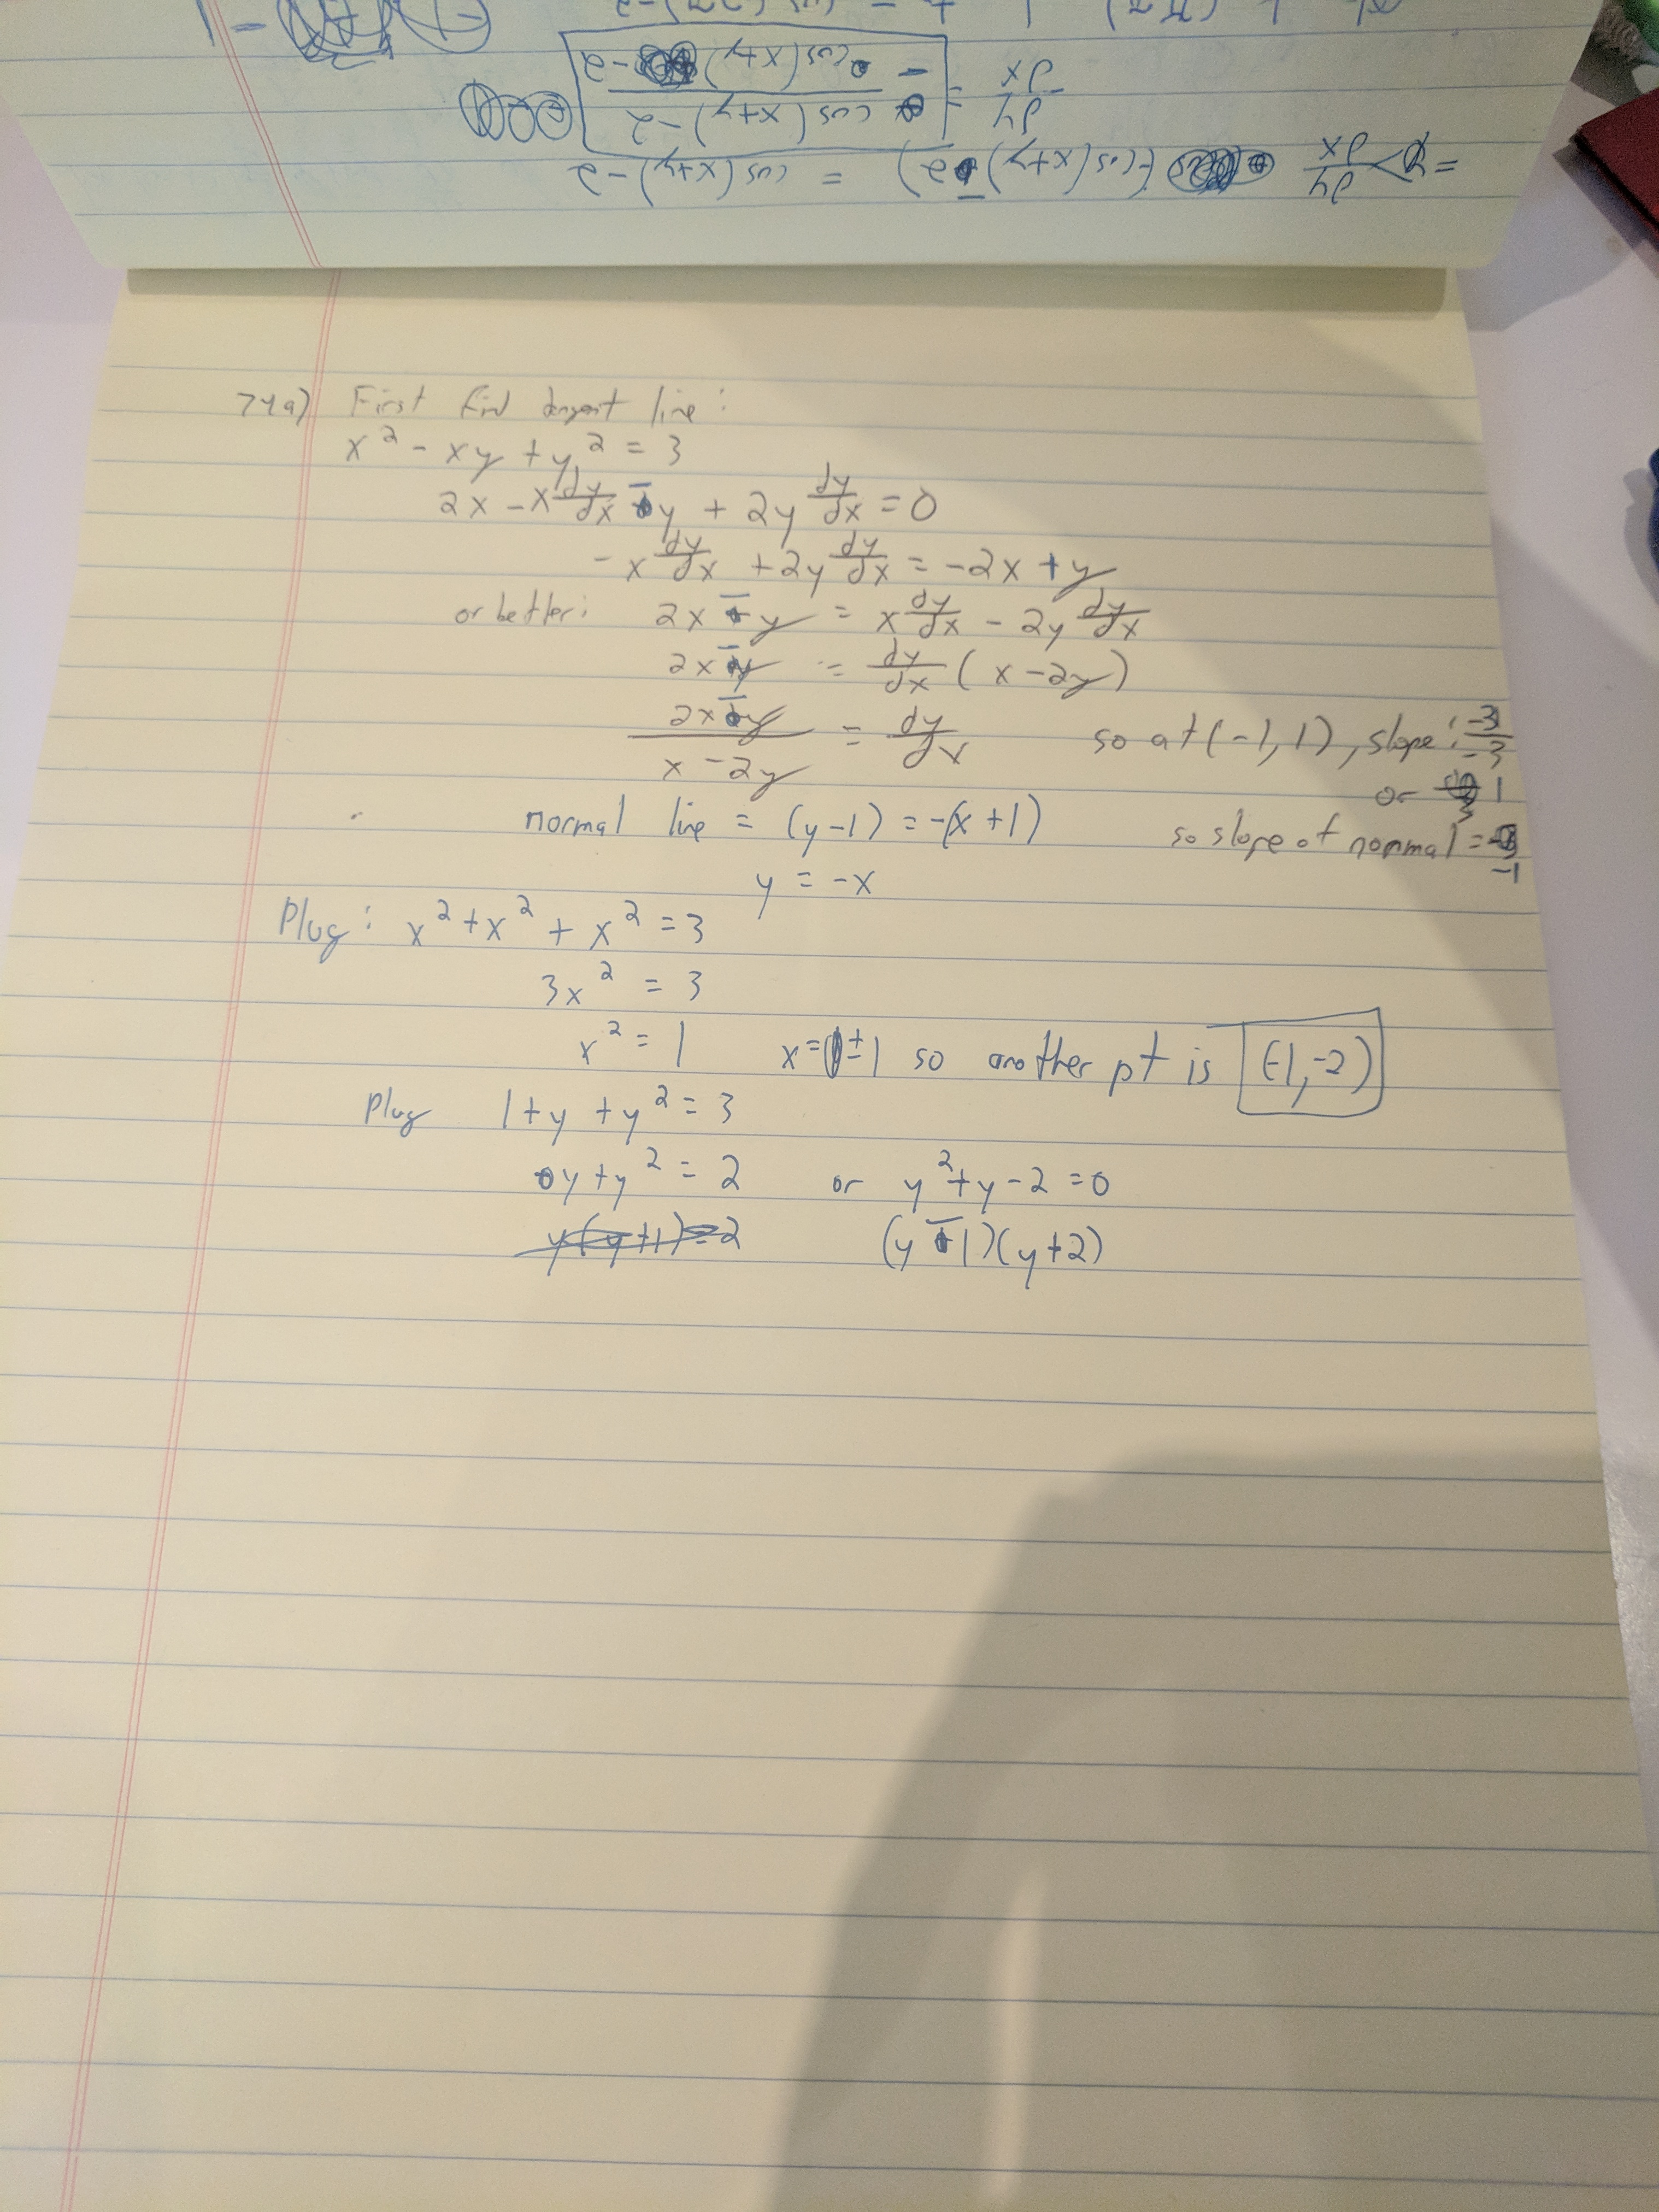 dy/dx = - cos(x+y)-2 / cos(x+y) -2
=> dy/dx (cos(x+y)-2) = cos(x+y)-2
74a) First find tangent line:
x² - xy + y² = 3
2x - x dy/dx - y + 2y dy/dx = 0
-x dy/dx + 2y dy/dx = -2x + y
or better: 2x - y = x dy/dx - 2y dy/dx
2x - y = dy/dx (x - 2y)
2x - y / x - 2y = dy/dx so at (-1, 1), slope: -3/-3
or 1
normal line = (y-1) = -(x+1) so slope of normal = -1
y = -x
Plug: x² + x² + x² = 3
3x² = 3
x² = 1 x = ±1 so another pt is (-1,-2)
Plug 1 + y + y² = 3
y + y² = 2 or y² + y - 2 = 0
y(y+1) = 2 (y - 1)(y+2)